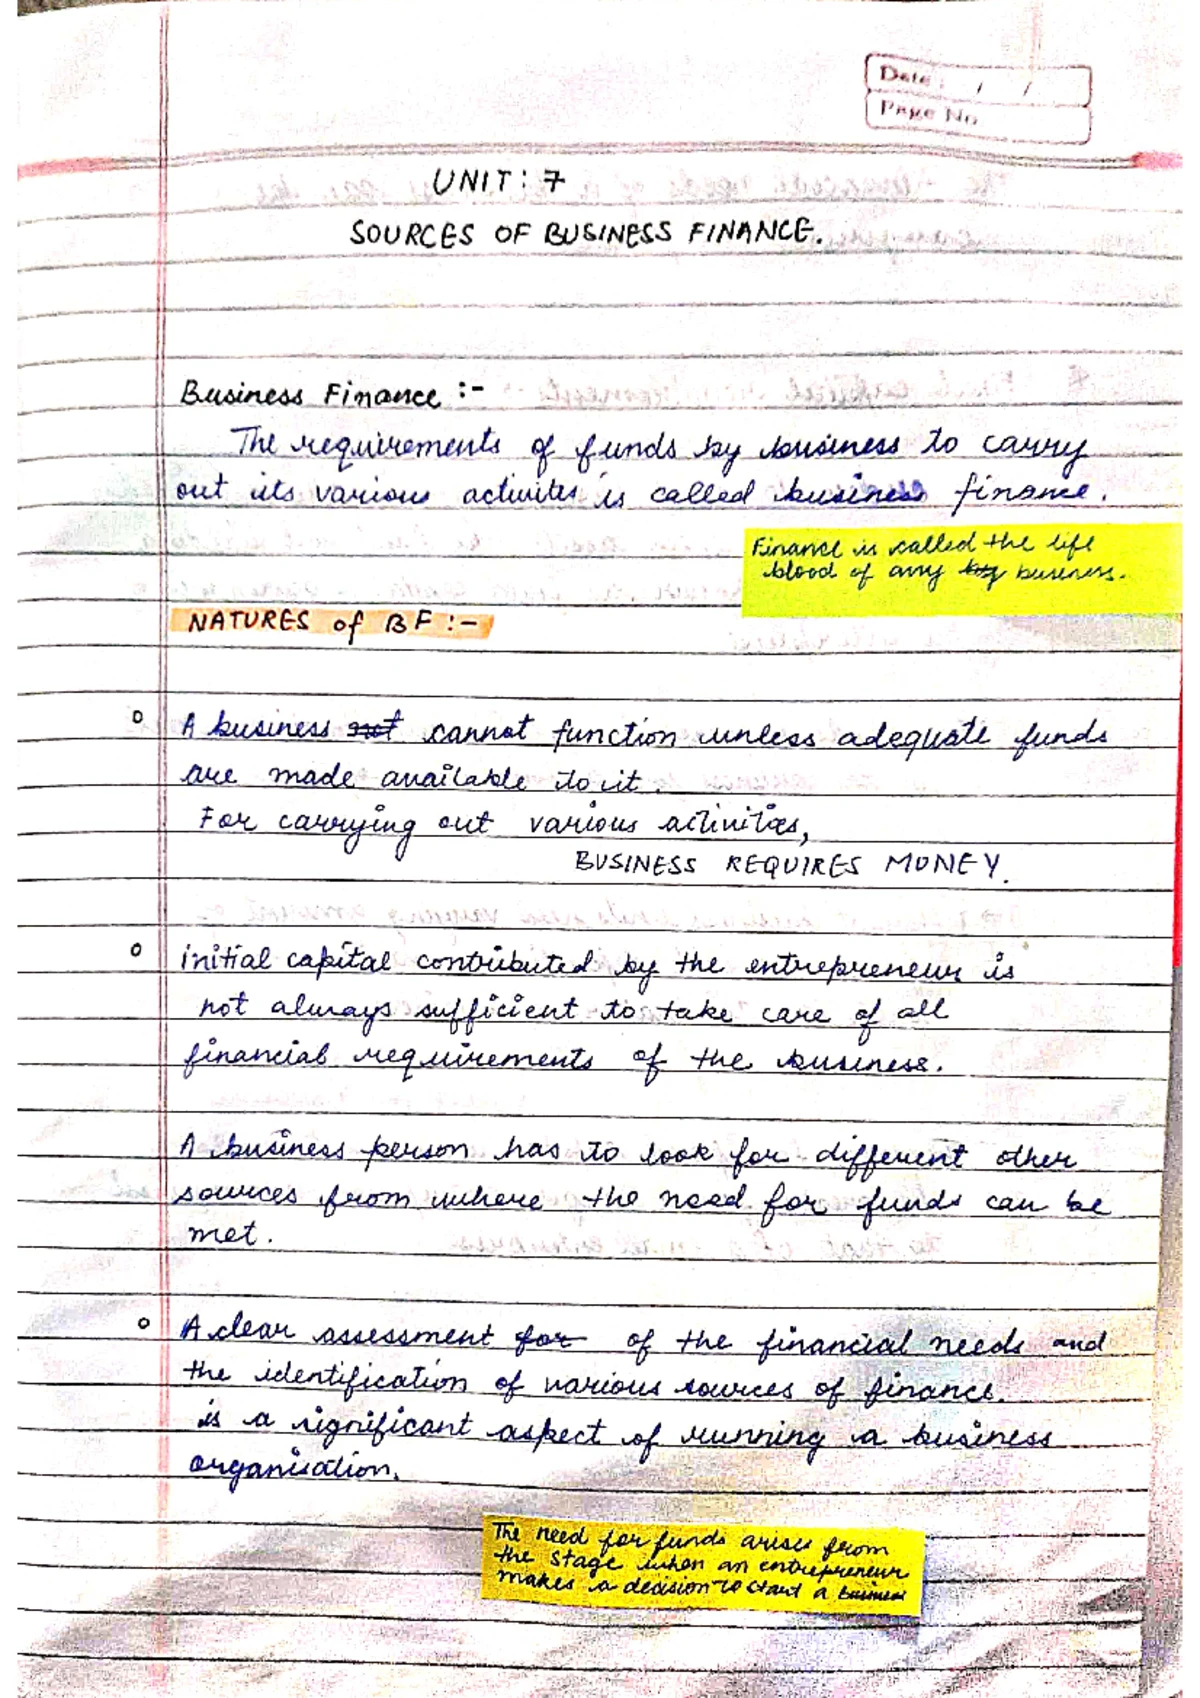 Date : / /
Page No.
UNIT: 7
SOURCES OF BUSINESS FINANCE.
Business Finance :-
The requirements of funds by business to carry
out its various activites is called business finance.
Finance is called the life
blood of any business.
NATURES of BF :-
A business not cannot function unless adequate funds
are made available to it.
For carrying out various activities,
BUSINESS REQUIRES MONEY.
initial capital contributed by the entrepreneur is
not always sufficient to take care of all
financial requirements of the business.
A business person has to look for different other
sources from where the need for funds can be
met.
A clear assessment for of the financial needs and
the identification of various sources of finance.
is a significant aspect of running a business
organisation.
The need for funds arises from
the stage when an entrepreneur
makes a decision to start a business